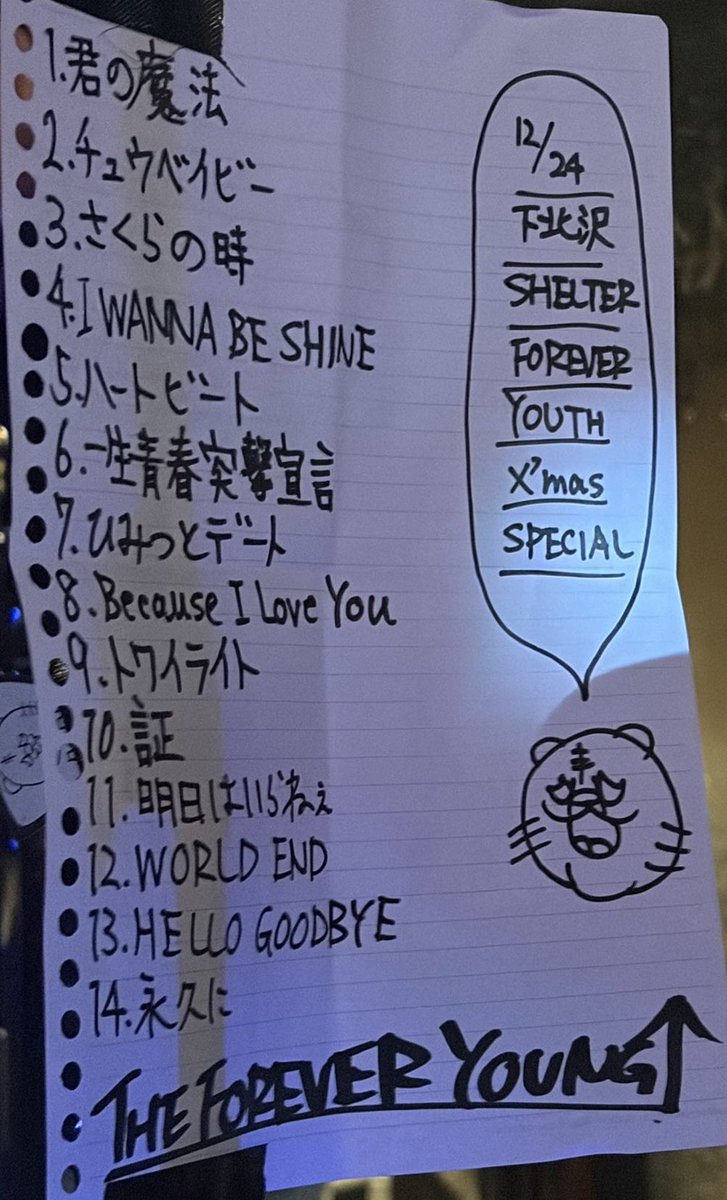 1.君の魔法
2.チュウベイビー
3.さくらの時
4.I WANNA BE SHINE
5.ハートビート
6.一生青春突撃宣言
7.ひみつとデート
8.Because I Love You
9.トワイライト
10.証
11.明日はいらねぇ
12.WORLD END
13.HELLO GOODBYE
14.永久に
THE FOREVER YOUNG
12/24
下北沢
SHELTER
FOREVER
YOUTH
X'mas
SPECIAL